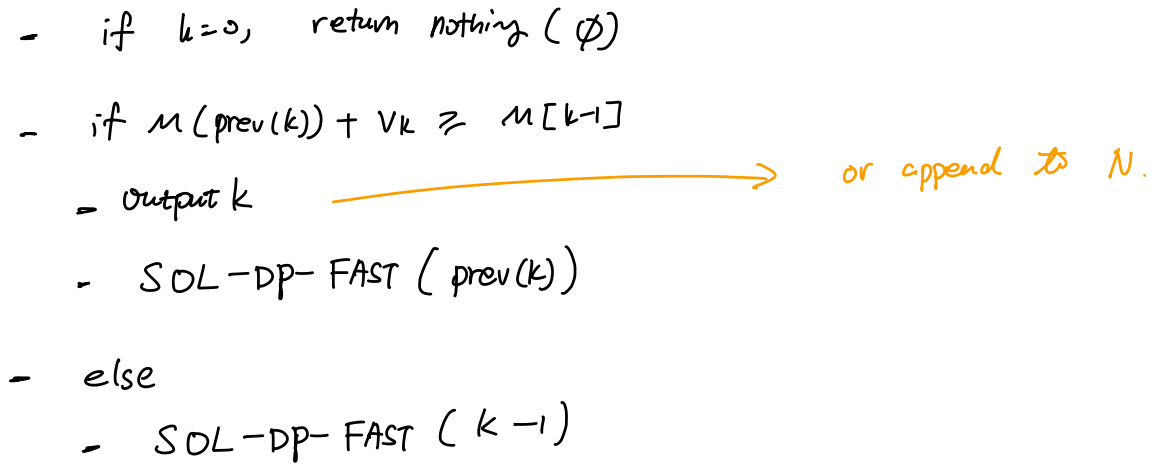 - if k=0, return nothing (∅)
- if M(prev(k)) + Vk ≥ M[k-1]
- output k → or append to N.
- SOL-DP-FAST (prev(k))
- else
- SOL-DP-FAST (k-1)